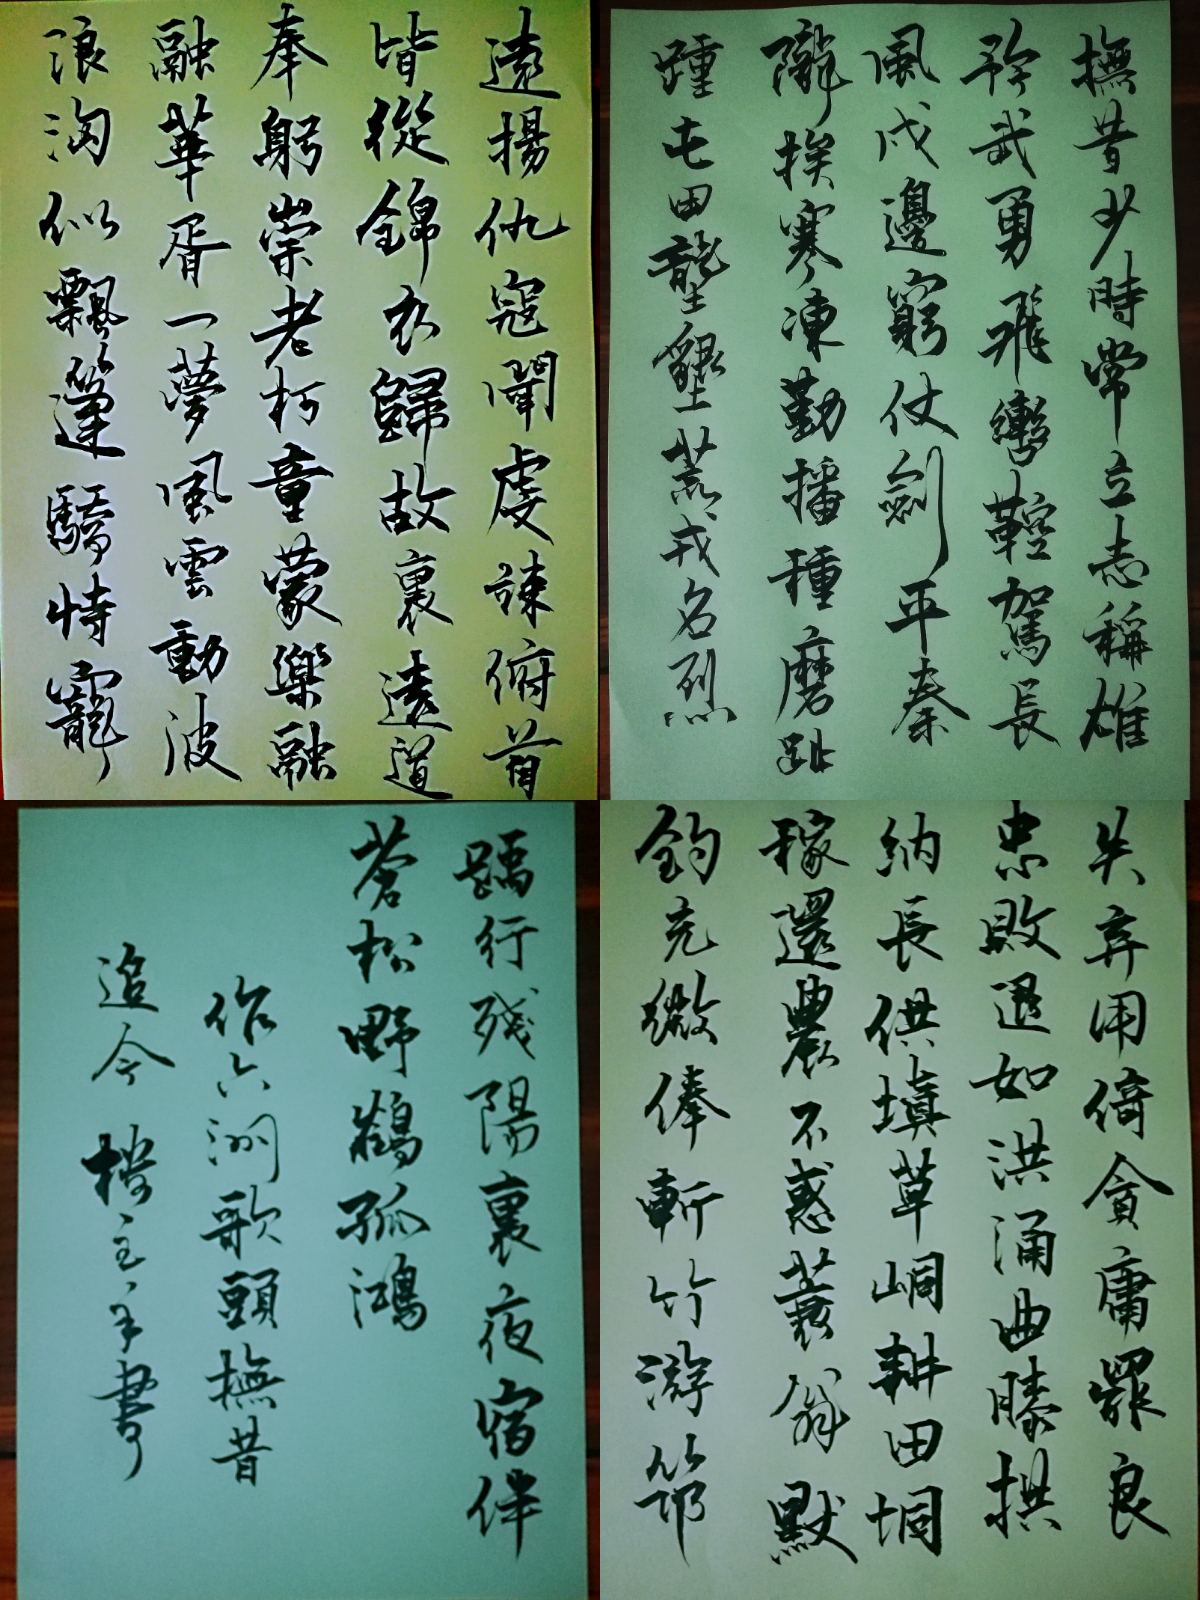 撫昔少時常立志稱雄
矜武勇飛轡鞚駕長
風戍邊窮仗劍平秦
隴挨寒凍勤播種磨跐
踵屯田壟墾荒戎名烈
遠揚仇寇闡虔竦俯首
皆從錦衣歸故裏遠道
奉躬崇老柯童蒙樂融
融華胥一夢風雲動波
浪淘似飄篷驕恃寵
失弃用倚貪庸罷良
忠敗退如洪涌曲膝拱
納長供填草峒耕田垌
稼還農不惑蓑翁默
鈞充微俸斬竹游筇
踽行残陽裏夜宿伴
蒼松野鶴孤鴻
作六洲歌頭撫昔
追今 樓主手書